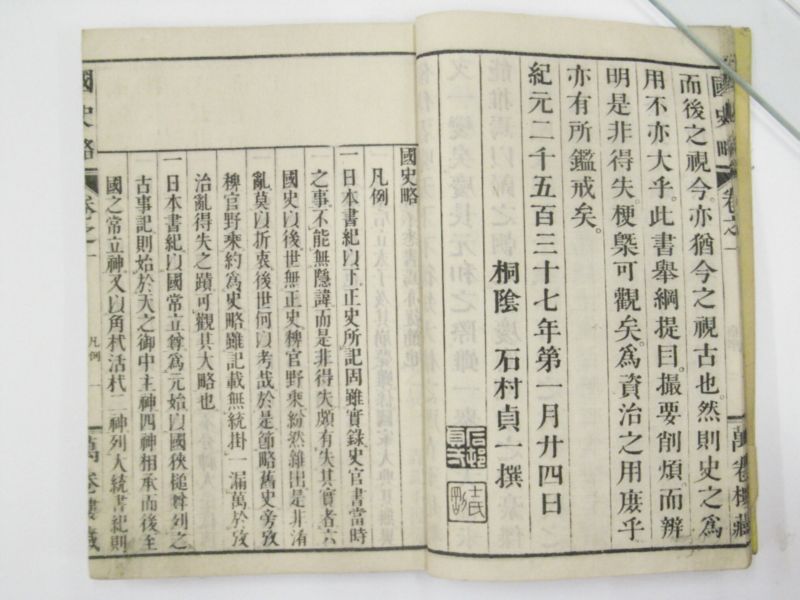 國史略 卷之一
萬卷樓藏
而後之視今。亦猶今之視古也。然則史之爲
用不亦大乎。此書舉綱提目。撮要削煩。而辨
明是非得失。梗槩可觀矣。爲資治之用。庶乎
亦有所鑑戒矣。
紀元二千五百三十七年第一月廿四日
桐陰 石村貞一撰
國史略
凡例
一日本書紀以下正史所記固雖實錄史官書當時
之事不能無隱諱而是非得失頗有失其實者六
國史以後世無正史稗官野乘紛然雜出是非淆
亂莫以折衷後世何以考哉於是節略舊史旁攷
稗官野乘約爲史略雖記載無統掛一漏萬於攷
治亂得失之蹟可觀其大略也
一日本書紀以國常立尊爲元始以國狹槌尊列之
古事記則始於天之御中主神四神相承而後至
國之常立神又以角杙活杙二神列入統書紀則
國史略 卷之一 凡例 一 萬卷樓藏